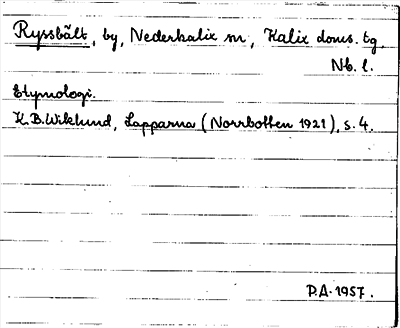 Ryssbält, by, Nederkalix sn, Kalix doms. tg,
Nb. l.
Etymologi.
K.B. Wiklund, Lapparna (Norrbotten 1921), s. 4.
P.A. 1957.